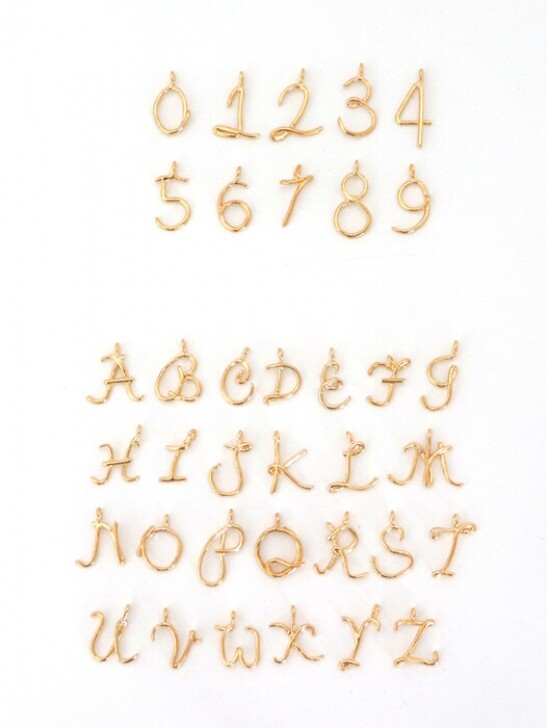 0 1 2 3 4
5 6 7 8 9
A B C D E F G
H I J K L M
N O P Q R S T
U V W X Y Z